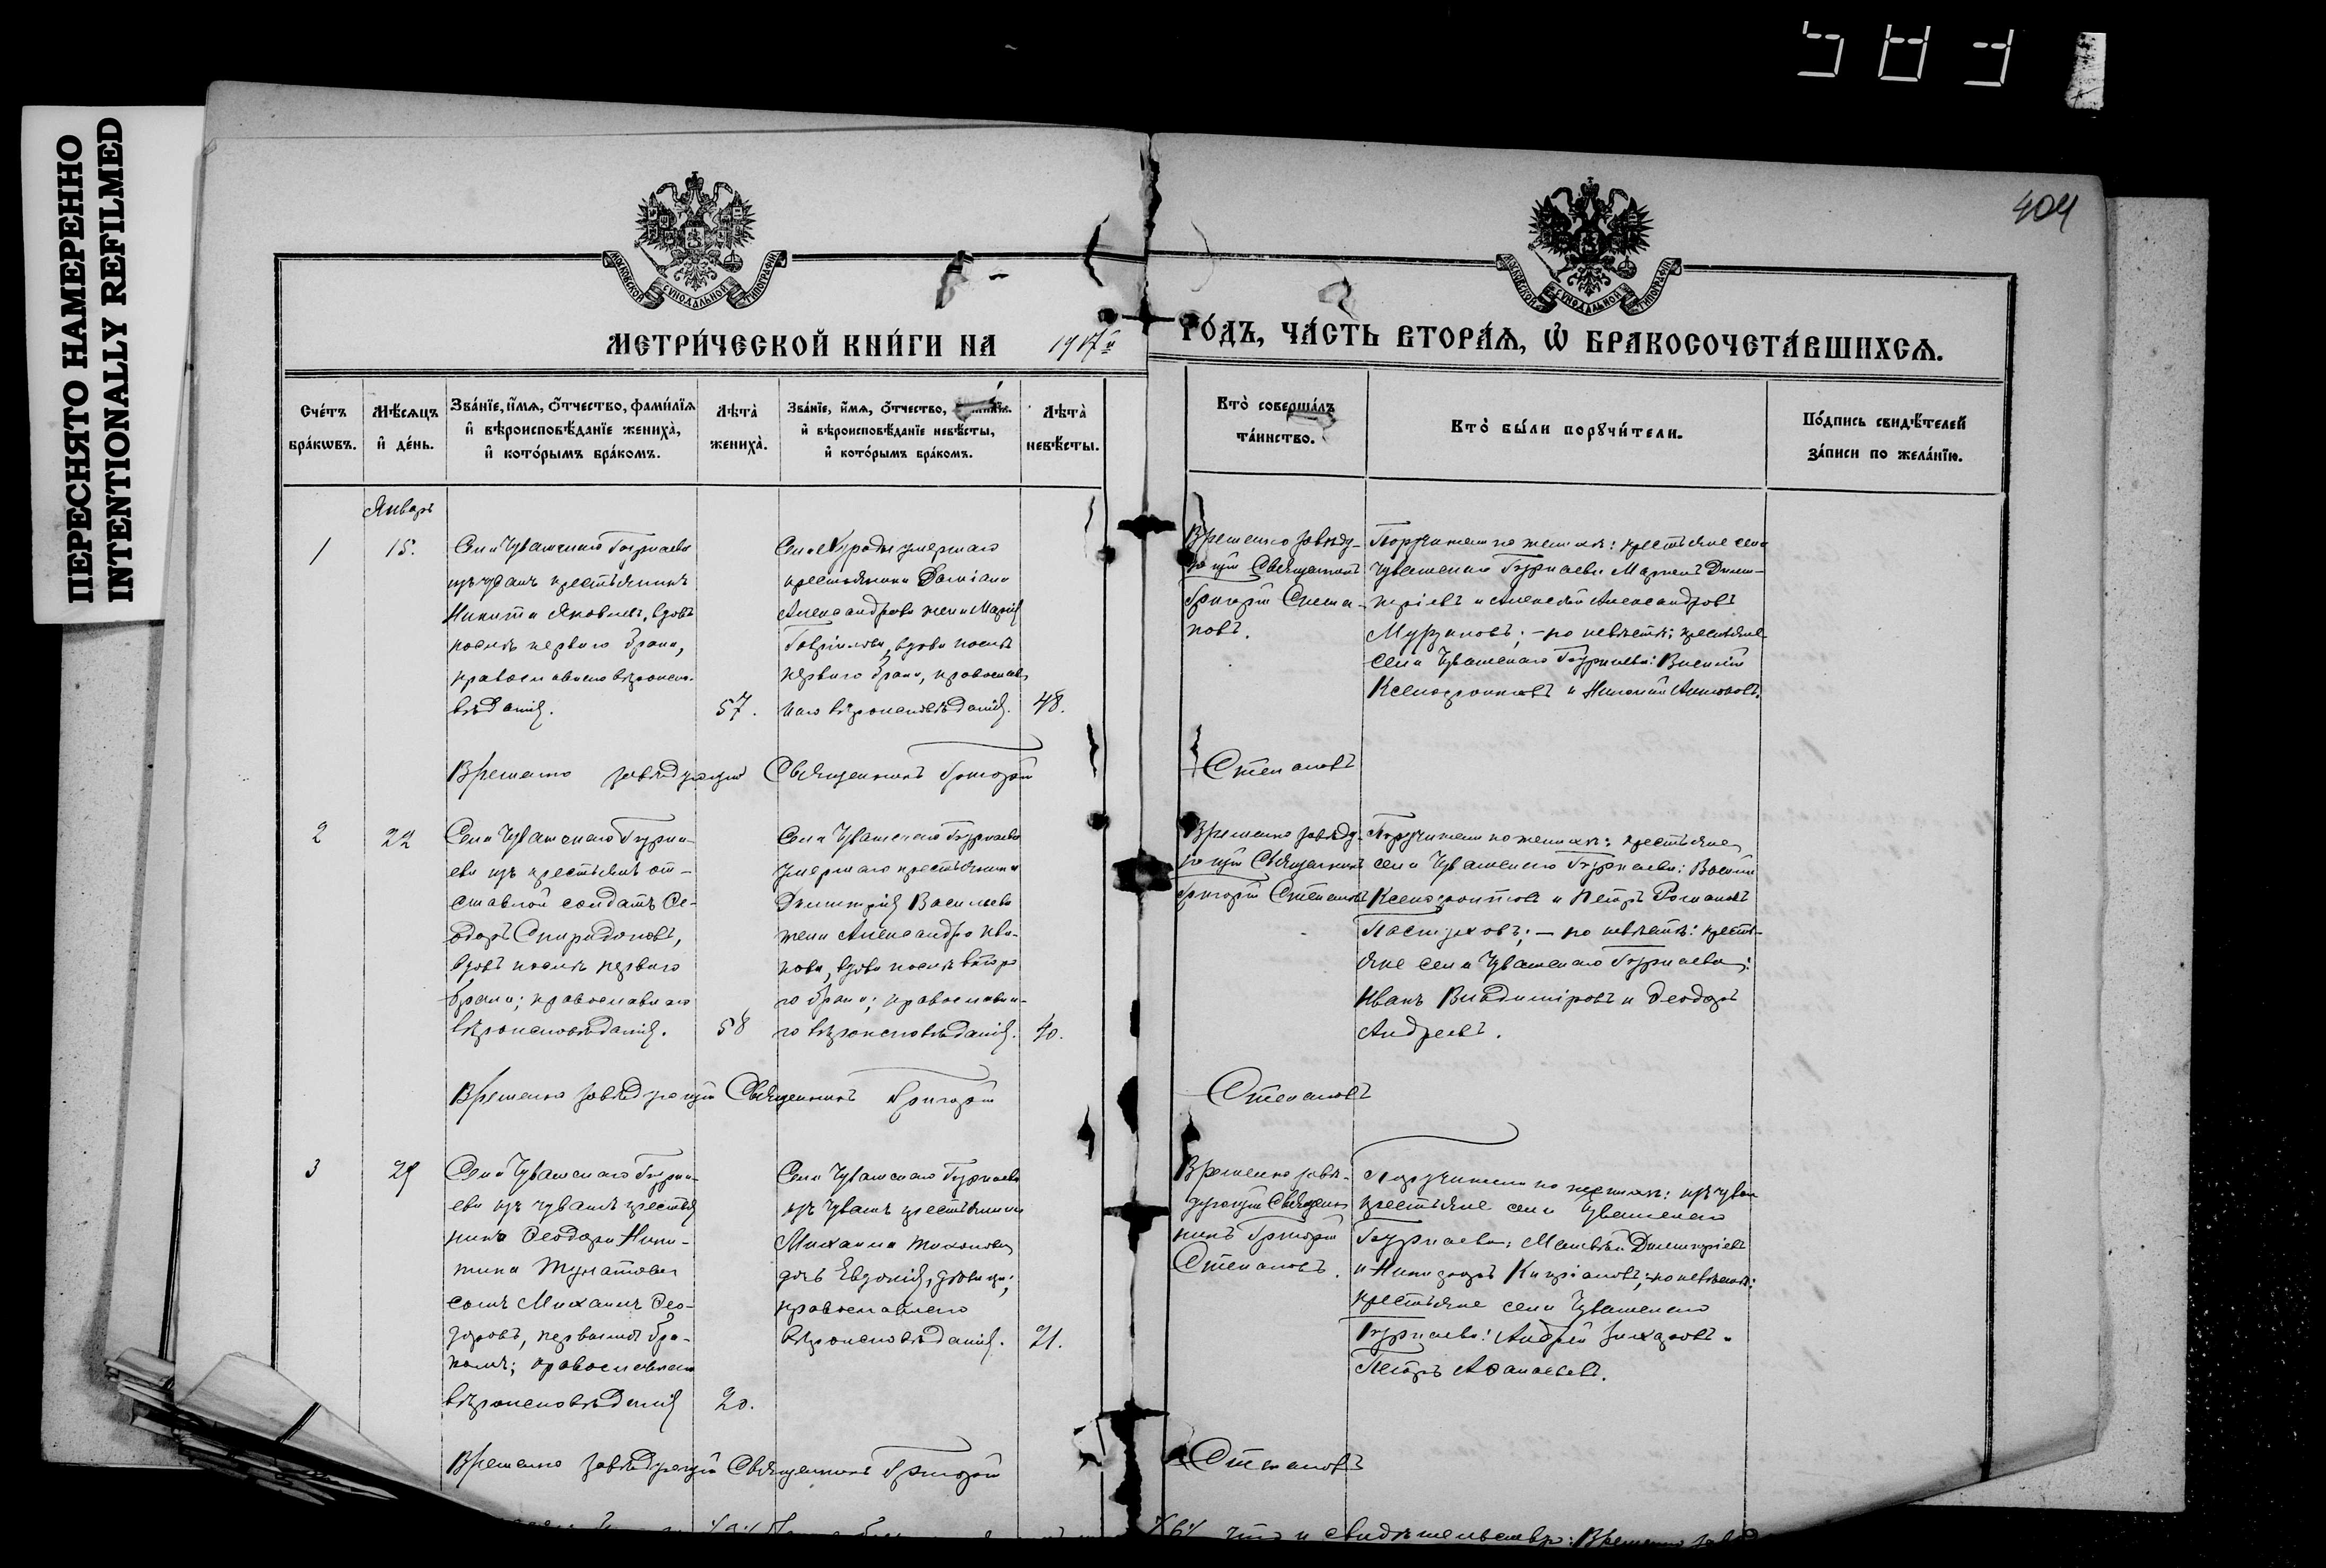 ПЕРЕСНЯТО НАМЕРЕННО
INTENTIONALLY REFILMED
404
МОСКОВСКОЙ СѴНОДАЛЬНОЙ ТИПОГРАФІИ
МОСКОВСКОЙ СѴНОДАЛЬНОЙ ТИПОГРАФІИ
МЕТРИ́ЧЕСКОЙ КНИ́ГИ НА 1917й ГО́ДЪ, ЧА́СТЬ ВТОРА́Ѧ, Ѡ҆ БРАКОСОЧЕТА́ВШИХСѦ.
Сче́тъ бра́кѡвъ.
Мѣ́сѧцъ и҆ де́нь.
Зва́нїе, и҆́мѧ, ѻ҆́тчество, фами́лїѧ и҆ вѣроисповѣ́данїе жениха̀, и҆ кото́рымъ бра́комъ.
Лѣта̀ жениха̀.
Зва́нїе, и҆́мѧ, ѻ҆́тчество, и҆ вѣроисповѣ́данїе невѣ́сты, и҆ кото́рымъ бра́комъ.
Лѣта̀ невѣ́сты.
Кто̀ соверша́лъ та́инство.
Кто̀ бы́ли порꙋчи́тели.
По́дпись свидѣ́телей за́писи по жела́нїю.
Январь
1
15.
Села Чувашскаго Бурнаева
изъ чувашъ крестьянинъ
Никита Яковлевъ, вдовъ
послѣ перваго брака,
православнаго вѣроиспо-
вѣданія.
57.
умершаго
крестьянина Даміана
Александрова жена Марія
Гаврилова, вдова послѣ
перваго брака, православ
наго вѣроисповѣданія.
48.
Временно завѣду-
ющій Священникъ
Григорій Степа-
новъ.
Поручители по женихѣ: крестьяне села
Чувашскаго Бурнаева Димит-
ріевъ и Алексѣй Александровъ
Мурзаковъ; – по невѣстѣ: крестьяне
села Чувашскаго Бурнаева: Василій
Ксенофонтовъ и Николай
Временно завѣдующій Священникъ Григорій Степановъ
2
22
Села Чувашскаго Бурна-
ева изъ крестьянъ от-
ставной солдатъ Ѳе-
одоръ Спиридоновъ,
вдовъ послѣ перваго
брака; православнаго
вѣроисповѣданія.
58
Села Чувашскаго Бурнаева
умершаго крестьянина
Димитрія Васильева
жена Александра Ива-
нова, вдова послѣ второ
го брака; православна-
го вѣроисповѣданія.
40.
Временно завѣду-
ющій Священникъ
Григорій Степановъ
Поручители по женихѣ: крестьяне
села Чувашскаго Бурнаева: Василій
Ксенофонтовъ и Петръ Романовъ
Пастуховъ; – по невѣстѣ: кресть-
яне села Чувашскаго Бурнаева:
Иванъ Владиміровъ и Ѳеодоръ
Андреевъ.
Временно завѣдующій Священникъ Григорій Степановъ
3
29
Села Чувашскаго Бурна-
ева изъ чувашъ крестья
нина Ѳеодора Ники-
тина
сынъ Михаилъ Ѳео-
доровъ, первымъ бра-
комъ; православнаго
вѣроисповѣданія
20.
Села Чувашскаго Бурнаева
изъ чувашъ крестьянина
Михаила Тихонова
дочь Евдокія, дѣвица;
православнаго
вѣроисповѣданія.
21.
Временно завѣ-
дующій Священ
никъ Григорій
Степановъ.
Поручители по женихѣ: изъ чувашъ
крестьяне села Чувашскаго
Бурнаева: Матвѣй Димитріевъ
и Никифоръ Кипріановъ; по невѣстѣ:
крестьяне села Чувашскаго
Бурнаева: Андрей Захаровъ и
Петръ Аѳанасьевъ.
Временно завѣдующій Священникъ Григорій Степановъ
что и свидѣтельствую: Временно